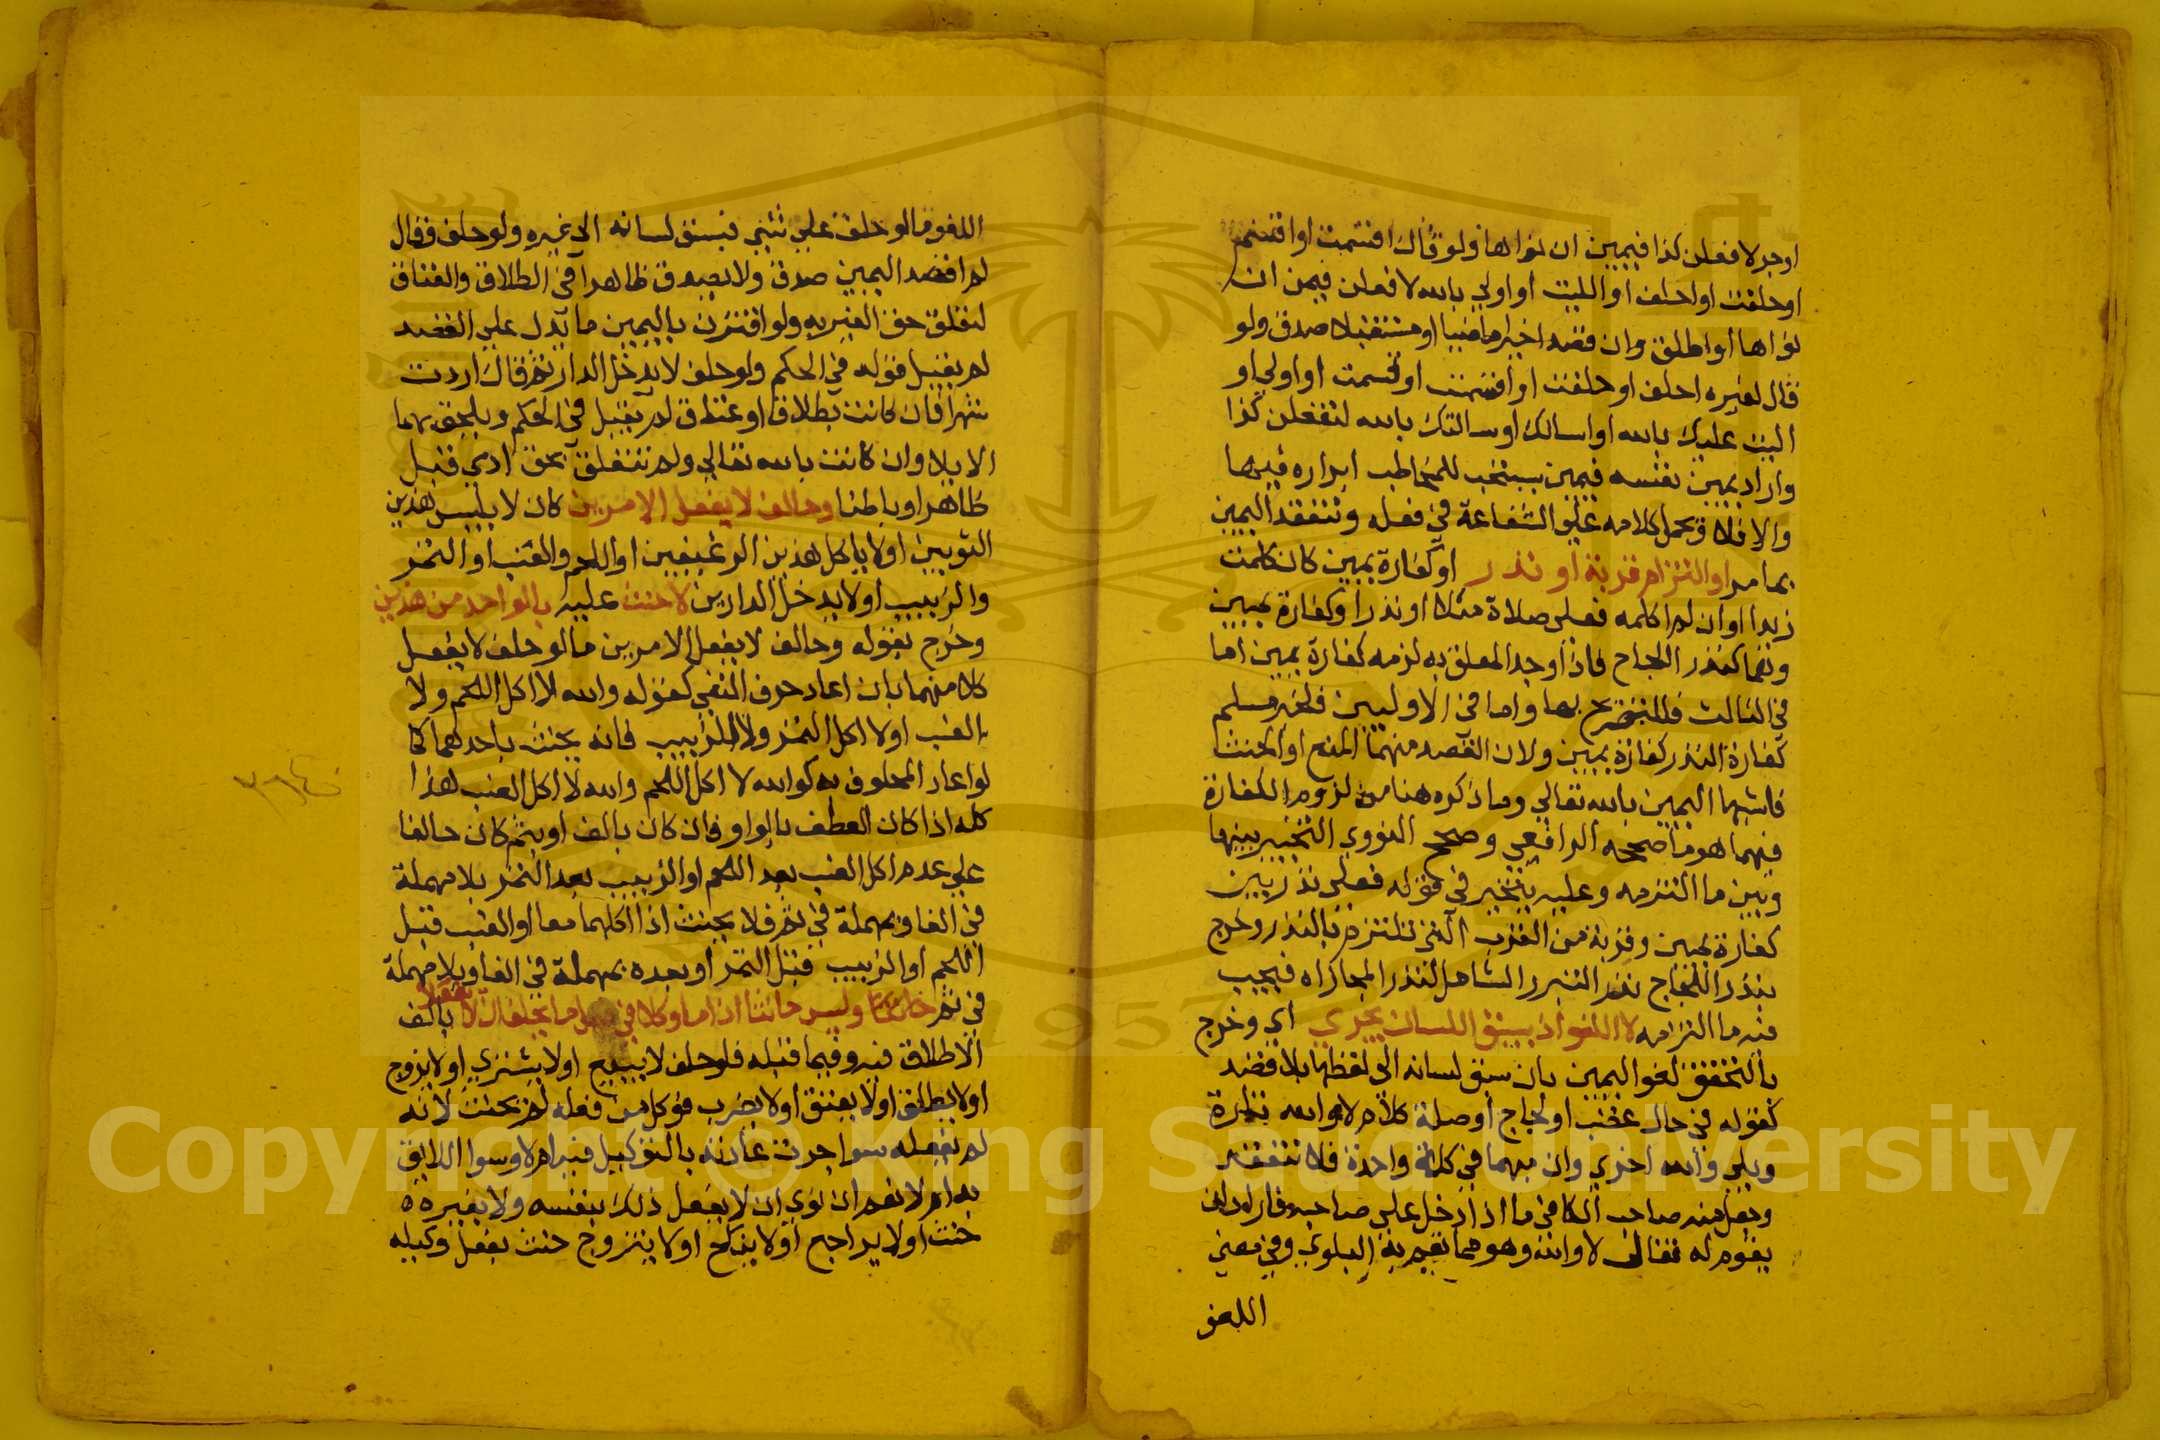 او جر لافعلن كذا فيمين ان نواها ولو قال اقسمت او اقسم
او حلفت او احلف او اليت او اولي بالله لافعلن فيمن ان
نواها او اطلق وان قصد اخبارا ماضيا او مستقبلا صدق ولو
قال لغيره احلف او حلفت او اقسمت او اقسمت او اولي او
اليت عليك بالله او اسالك او سالتك بالله لتفعلن كذا
واراد يمين نفسه فيمين يستحب للمخاطب ابراره فيها
والا فلا ويحمل كلامه علي الشفاعة في فعله وتنعقد اليمين
بما مر او التزام قربة او نذر او كفارة يمين كان كلمت
زيدا او ان لم اكلمه فعلي صلاة مثلا او نذر او كفارة يمين
ونما كنذر اللجاج فاذا وجد المعلق به لزمه كفارة يمين اما
في الثالث فللتصريح بها واما في الاوليين فلخبر مسلم
كفارة النذر كفارة يمين ولان القصد منهما المنع او الحنث
فاشبها اليمين بالله تعالي وما ذكره هنا من لزوم الكفارة
فيهما هو ما صححه الرافعي وصحح النووي التخيير بينها
وبين ما التزمه وعليه يتخير في قوله فعلي نذر بين
كفارة يمين وقربة من القرب التي تلتزم بالنذر وخرج
بنذر اللجاج نذر التبرر الشامل لنذر المجازاه فيجب
فيه ما التزمه لا اللغو اذ يسبق اللسان يجري اي وخرج
بالتحقق لغو اليمين بان سبق لسانه الي لفظها بلا قصد
كقوله في حال غضب او لجاج او صلة كلام لا والله تارة
وبلي والله اخري وان جمعهما في كلمة واحدة فلا تنعقد
وجعل منه صاحب الكافي ما اذا دخل علي صاحبه فاراد ان
يقوم له فقال لا والله وهو مما تعم به البلوي وفي معني
اللغو
اللغو ما لو حلف علي شيء فسبق لسانه الي غيره ولو حلف وقال
لم اقصد اليمين صدق ولا يصدق ظاهرا في الطلاق والعتاق
لتعلق حق الغير به ولو اقترن باليمين ما يدل علي القصد
لم يقبل قوله في الحكم ولو حلف لا يدخل الدار ثم قال اردت
شهرا فان كانت بطلاق او عتاق لم يقبل في الحكم ويلحق بهما
الايلا وان كانت بالله تعالي ولم تتعلق بحق ادمي قبل
ظاهرا وباطنا وحالف لا يفعل الامرين كان لا يلبس هذين
الثوبين او لا ياكل هذين الرغيفين او اللحم والعنب او التمر
والزبيب او لا يدخل الدارين لا حنث عليه بالواحد من هذين
وخرج بقوله وحالف لا يفعل الامرين ما لو حلف لا يفعل
كلا منهما بان اعاد حرف النفي كقوله والله لا اكل اللحم ولا
العنب او لا اكل التمر ولا الزبيب فانه يحنث باحدهما كما
لو اعاد المحلوف به كوالله لا اكل اللحم والله لا اكل العنب هذا
كله اذا كان العطف بالواو فان كان بالف او بثم كان حالفا
علي عدم اكل العنب بعد اللحم او الزبيب بعد التمر بلا مهملة
في الفا وبمهملة في ثم فلا يحنث اذا اكلهما معا او العنب قبل
اللحم او الزبيب قبل التمر او بعده بمهملة في الفا وبلا مهملة
في ثم وليس حانثا اذا ما وكلا في ما يحلفان لا يفعلا بالف
الاطلاق فيه وفيما قبله فلو حلف لا يبيع او لا يشتري او لا يزوج
او لا يطلق او لا يعتق او لا يضرب فوكل من فعله لم يحنث لانه
لم يفعله سوا جرت عادته بالتوكيل فيه ام لا وسوا اللايق
به ام لا نعم ان نوي ان لا يفعل ذلك بنفسه ولا بغيره ه
حنث او لا يراجع او لا ينكح او لا يتزوج حنث بفعل وكيله
Copyright © King Saud University
1957